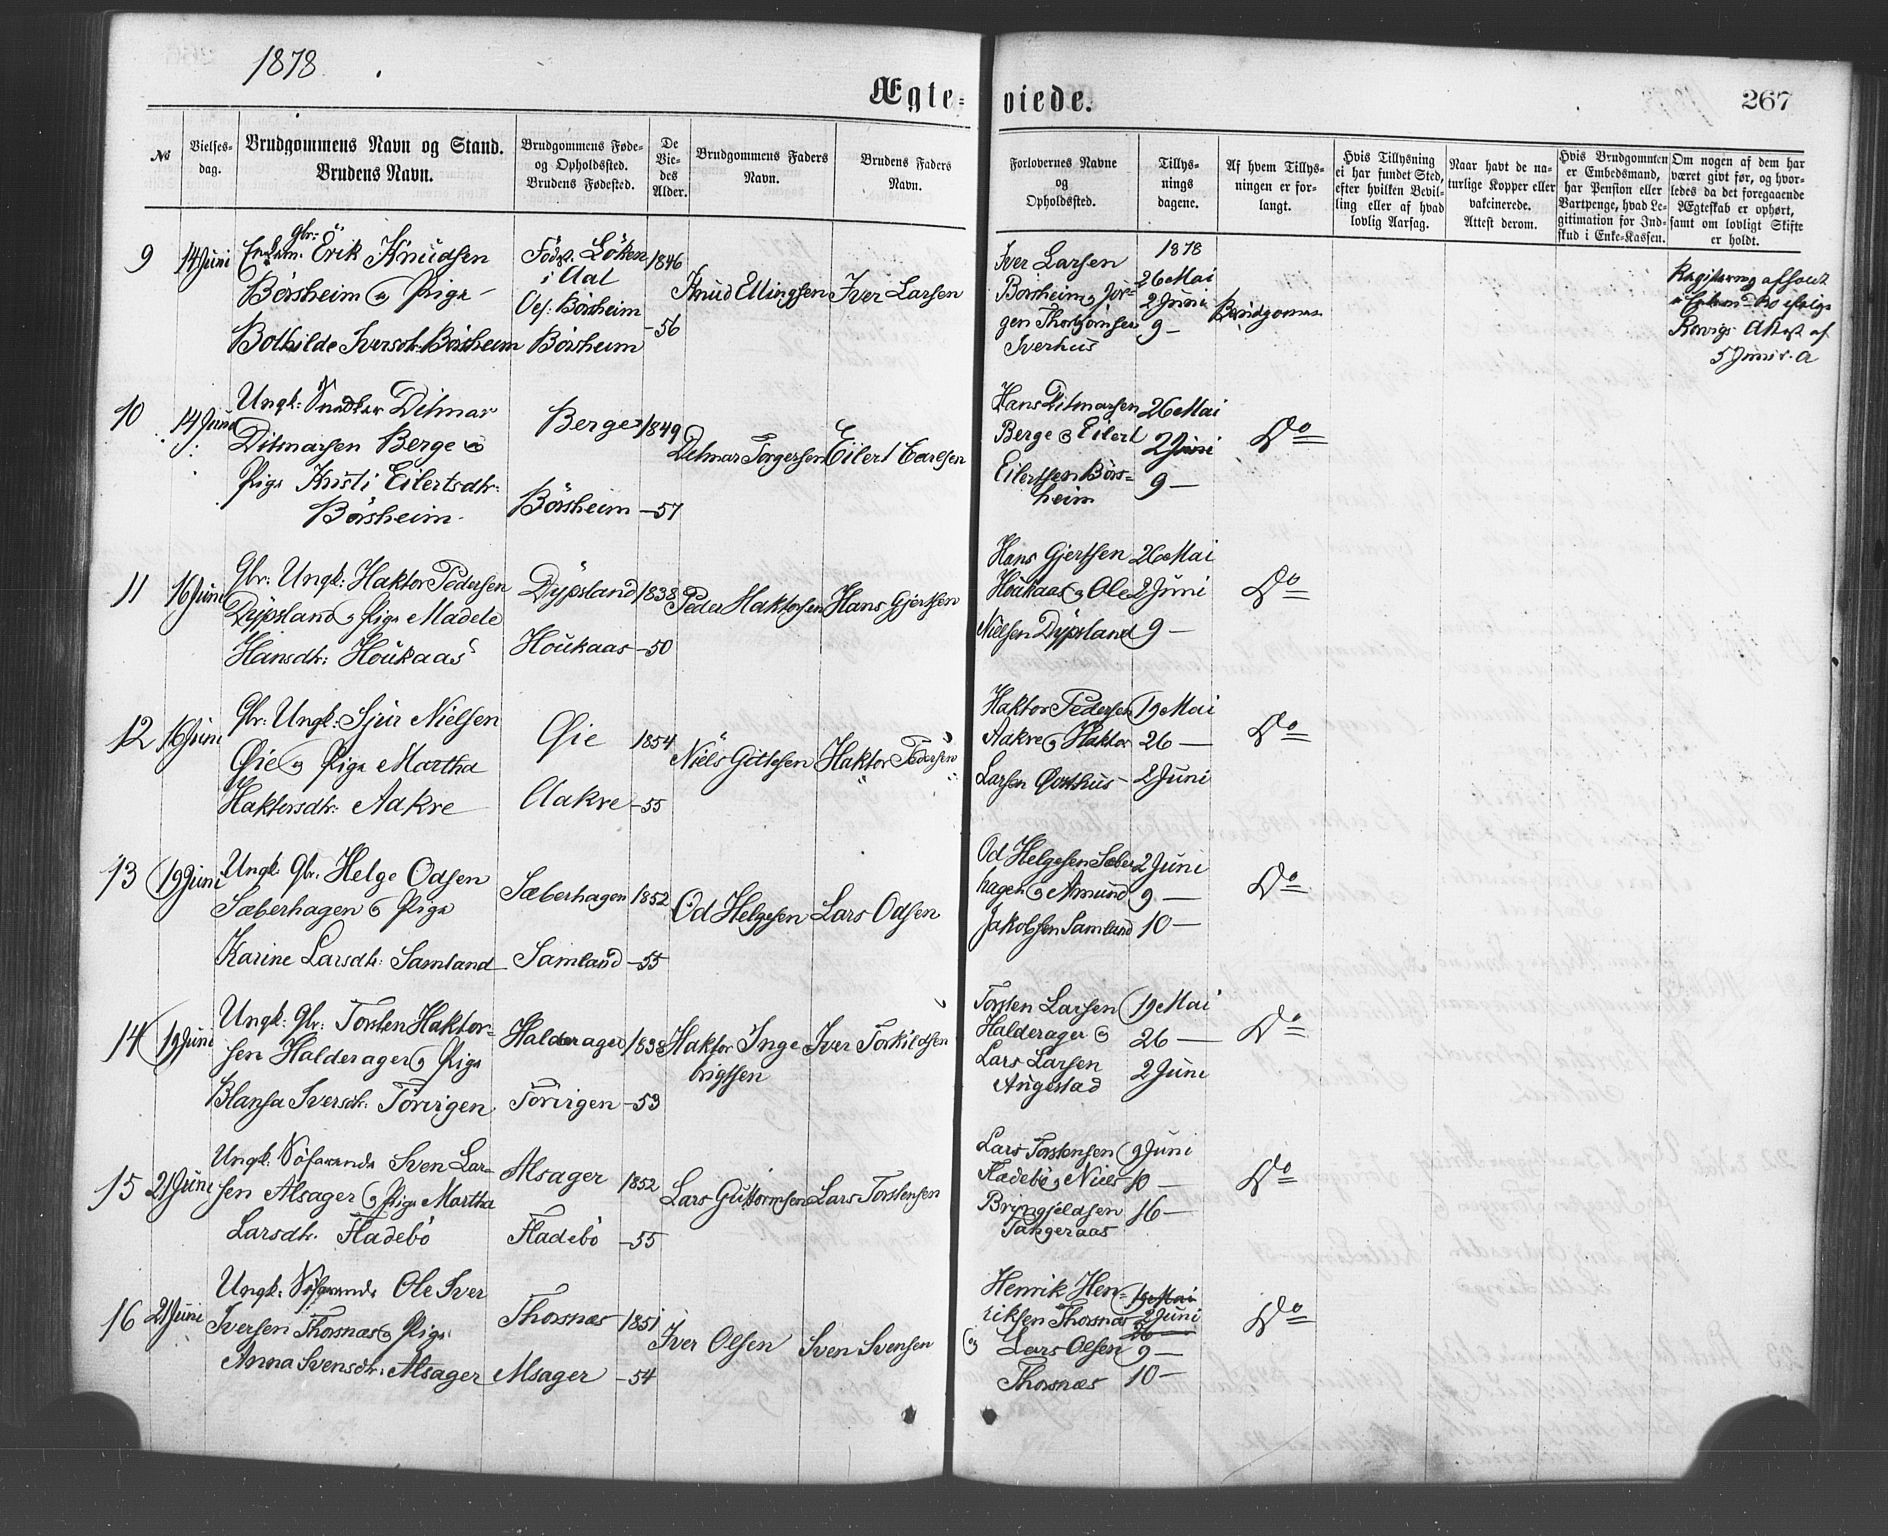 1878
Ægte-
viede.
267
No
Vielses-
dag.
Brudgommens Navn og Stand.
Brudens Navn.
Brudgommens Føde-
og Opholdsted.
Brudens Fødested.
De
Vie-
des
Alder.
Brudgommens Faders
Navn.
Brudens Faders
Navn.
Forlovernes Navne
og
Opholdsted.
Tillys-
nings
dagene.
Af hvem Tillys-
ningen er for-
langt.
Hvis Tillysning
ei har fundet Sted,
efter hvilken Bevil-
ling eller af hvad
lovlig Aarsag.
Naar havt de na-
turlige Kopper eller
vakcinerede.
Attest derom.
Hvis Brudgommen
er Embedsmand,
har Pension eller
Vartpenge, hvad Le-
gitimation for Ind-
skud i Enke-Kassen.
Om nogen af dem har
været givt før, og hvor-
ledes da det foregaaende
Ægteskab er ophørt,
samt om lovligt Skifte
er holdt.
9 14 Juni
Enkem. Gbr: Erik Knudsen
Börsheim og Pige
Bothilde Iversdr: Börsheim
Föds. Löken
i Aal
Op: Börsheim
Börsheim
1846
-56
Knud Ellingsen
Iver Larsen
Iver Larsen
Borsheim og Jör-
gen Thorbjörnsen
Iverhus
1878
26 Mai
2 Juni
9 -
Brudgommen
5 Juni
10 14 Juni
Ungk: Snedker Ditmar
Ditmarsen Berge og
Pige Kristi Eilertsdtr:
Börsheim
Berge
Börsheim
1849
-57
Ditmar Torgersen
Eilert Carlsen
Hans Ditmarsen
Berge og Eilert
Eilertsen Börs-
heim
26 Mai
2 Juni
9 -
Do
11 16 Juni
Gbr: Ungk: Haktor Pedersen
Dypsland og Pige Madele
Hansdtr: Houkaas
Dypsland
Houkaas
1838
-50
Peder Haktorsen
Hans Gjertsen
Hans Gjertsen
Houkaas og Ole
Nielsen Dypsland
26 Mai
2 Juni
9 -
Do
12 16 Juni
Gbr: Ungk: Sjur Nielsen
Øie og Pige Martha
Haktorsdtr: Aakre
Øie
Aakre
1854
-55
Niels Gittesen
Haktor Pedersen
Haktor Pedersen
Aakre og Haktor
Larsen
19 Mai
26 -
2 Juni
Do
13 19 Juni
Ungk. Gbr. Helge Odsen
Sæberhagen og Pige
Karine Larsdtr: Samland
Sæberhagen
Samland
1852
-55
Od Helgesen
Lars Odsen
Od Helgesen Sæber
hagen og Amund
Jakobsen Samland
2 Juni
9 -
10 -
Do
14 19 Juni
Ungk: Gbr: Torsten Haktor-
sen Halderager og Pige
Blansa Iversdtr. Törvigen
Halderager
Törvigen
1838
-53
Haktor Inge
brigtsen
Iver Torkildsen
Torsten Larsen
Halderager og
Lars Larsen
Augestad
19 Mai
26 -
2 Juni
Do
15 21 Juni
Ungk. Söfarende Sven Lar-
sen Alsager og Pige Martha
Larsdtr. Fladebö
Alsager
Fladebö
1852
-55
Lars Guttormsen
Lars Torstensen
Lars Torstensen
Fladebö og Niels
Bringjeldsen
Tangeraas
9 Juni
10 -
16 -
Do
16 21 Juni
Ungk. Söfarende Ole Iver
Iversen Thorsnæs og Pige
Anna Svensdtr: Alsager
Thorsnæs
Alsager
1851
-54
Iver Olsen
Sven Svensen
Henrik Hen-
riksen Thorsnæs
og Lars Olsen
Thorsnæs
19 Mai
2 Juni
26 -
9 -
10 -
Do